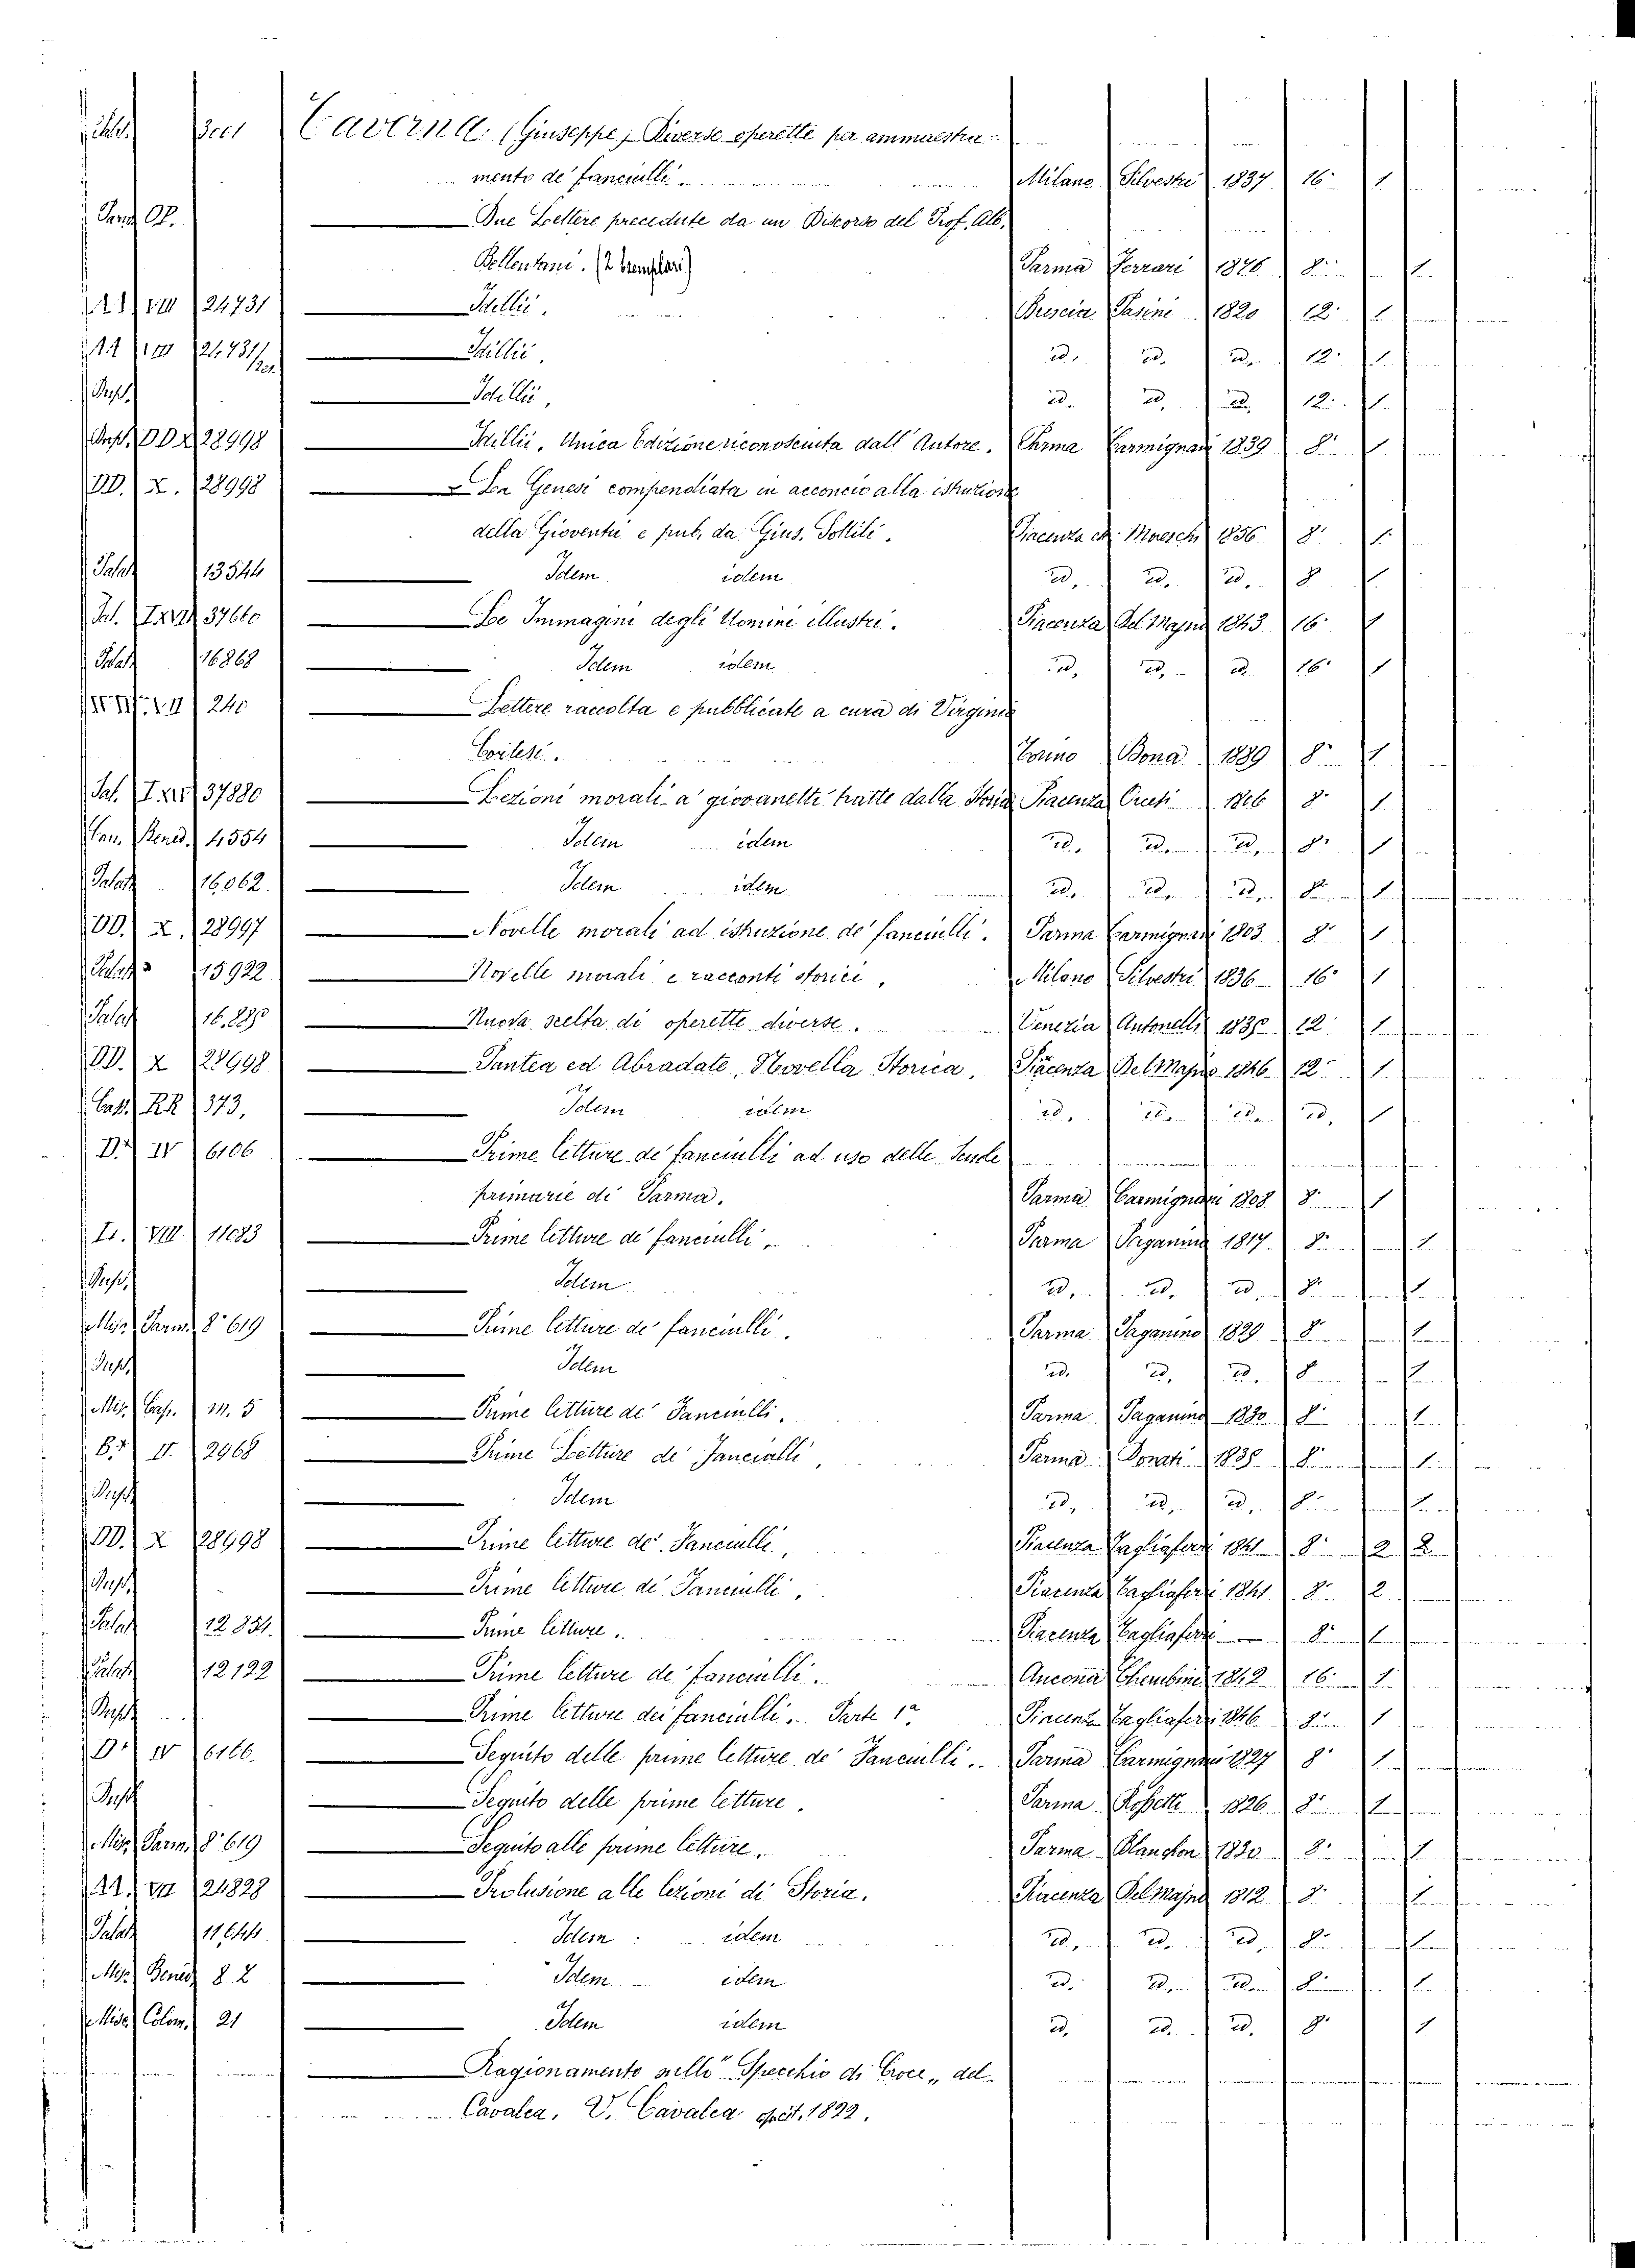 Taverna (Giuseppe) Diverse operette per ammaestra-
mento de' fanciulli. Milano Silvestri 1837 16° 1
Due Lettere precedute da un Discorso del Prof. Alb.
Bellentani. (2 Esemplari) Parma Ferrari 1876 8° 1
VIII 24731 Idillii. Brescia Pasini 1820 12° 1
Idillii. id. id. id. 12° 1
Idillii. id. id. id. 12° 1
DD X 28998 Idillii. Unica Edizione riconosciuta dall' Autore. Parma Carmignani 1839 8° 1
DD. X. 28998 La Genesi compendiata in acconcio alla istruzione
della Gioventù e pub. da Gius. Tottili. Piacenza 1856 8° 1
Palat 13544 Idem idem id. id. id. 8 1
37660 Le Immagini degli Uomini illustri. Piacenza Del Majno 1843 16° 1
Palat 16868 Idem idem id. id. id. 16° 1
240 Lettere raccolta e pubblicate a cura di Virginia
Cortesi. Torino Bona 1889 8° 1
37880 Lezioni morali a' giovanetti tratte dalla Storia Piacenza 8° 1
4554 Idem idem id. id. id. 8° 1
Palat 16062 Idem idem id. id. id. 8° 1
DD. X. 28997 Novelle morali ad istruzione de' fanciulli. Parma Carmignani 1803 8° 1
Palat 15922 Novelle morali e racconti storici. Milano Silvestri 1836 16° 1
Palat Nuova scelta di operette diverse. Venezia Antonelli 12° 1
DD. X 28998 Pantea ed Abradate, Novella Storica. Piacenza Del Majno 1846 12° 1
RR 373, Idem idem id. id. id. id. 1
IV 6106 Prime letture de' fanciulli ad uso delle Scuole
primarie di Parma. Parma Carmignani 1808 8° 1
VIII 11083 Prime letture de' fanciulli. Parma Paganino 1817 8° 1
Idem id. id. id. 8° 1
Misc. Parm. 8° 619 Prime letture de' fanciulli. Parma Paganino 1829 8° 1
Idem id. id. id. 8 1
Misc. M. 5 Prime letture de' Fanciulli. Parma Paganino 1830 8° 1
2968 Prime Letture de' Fanciulli. Parma Donati 8° 1
Idem id. id. id. 8° 1
DD. X 28998 Prime letture de' Fanciulli. Piacenza Tagliaferri 1841 8° 2 2
Prime letture de' Fanciulli. Piacenza Tagliaferri 1841 8° 2
Palat Prime letture. Piacenza Tagliaferri — 8° 1
Palat 12122 Prime letture de' fanciulli. Ancona Cherubini 1842 16° 1
Prime letture dei fanciulli. Parte 1ª Piacenza Tagliaferri 1846 8° 1
IV 6106 Seguito delle prime letture de' Fanciulli. Parma Carmignani 1827 8° 1
Seguito delle prime letture. Parma Rossetti 1826 8° 1
Misc. Parm. 8° 619 Seguito alle prime letture. Parma Blanchon 1830 8° 1
24828 Prolusione alle lezioni di Storia. Piacenza Del Majno 1812 8° 1
Palat 11644 Idem idem id. id. id. 8° 1
Misc. 8. 2 Idem idem id. id. id. 8° 1
Misc. Colom. 21 Idem idem id. id. id. 8° 1
Ragionamento sullo "Specchio di Croce„ del
Cavalca. V. Cavalca 1822.